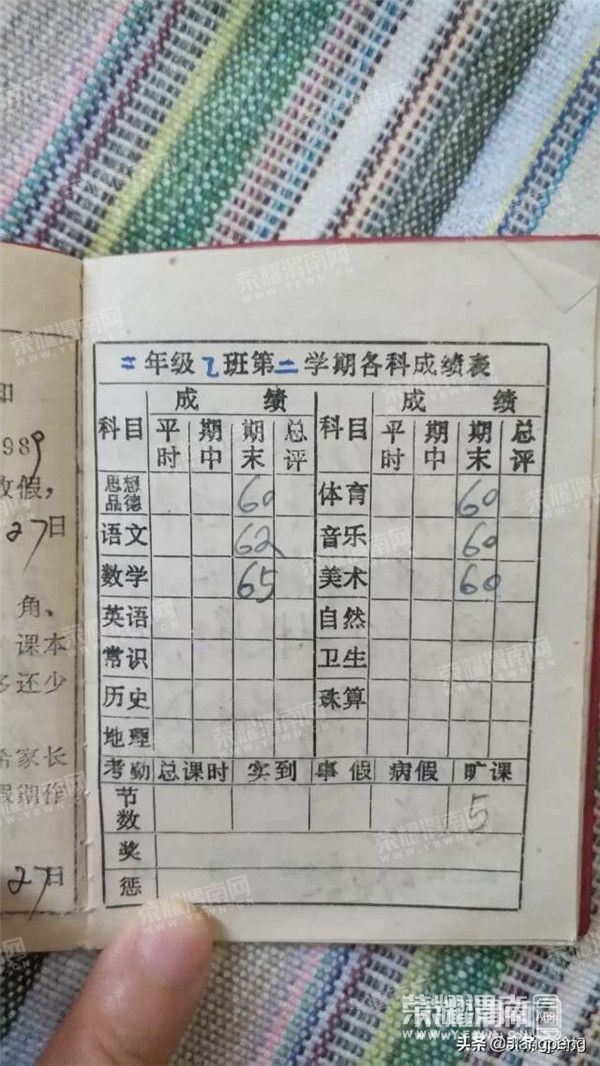 知
989
放假,
27日
角、
课本
多还少
希家长
假期作
27日
二年级乙班第二学期各科成绩表
科目 成绩 科目 成绩
平时 期中 期末 总评 平时 期中 期末 总评
思想品德 60 体育 60
语文 62 音乐 60
数学 65 美术 60
英语 自然
常识 卫生
历史 珠算
地理
考勤 总课时 实到 事假 病假 旷课
节数 5
奖
惩
荣耀渭南网
WWW.WN.CN
荣耀渭南网
头条 @Jiangpeng